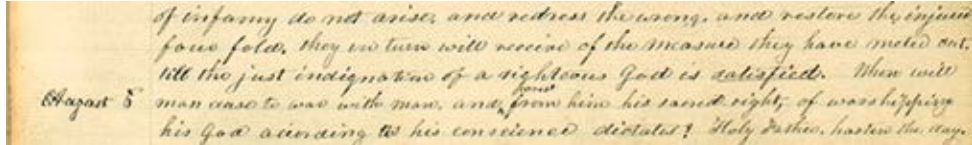 of infamy do not arise, and redress the wrong, and restore the injured
four fold, they in turn will receive of the measure they have meted out,
till the just indignation of a righteous God is satisfied. When will
August 5 man cease to war with man, and from him his sacred right, of worshipping
his God according to his conscience dictates? Holy Father, hasten the day.